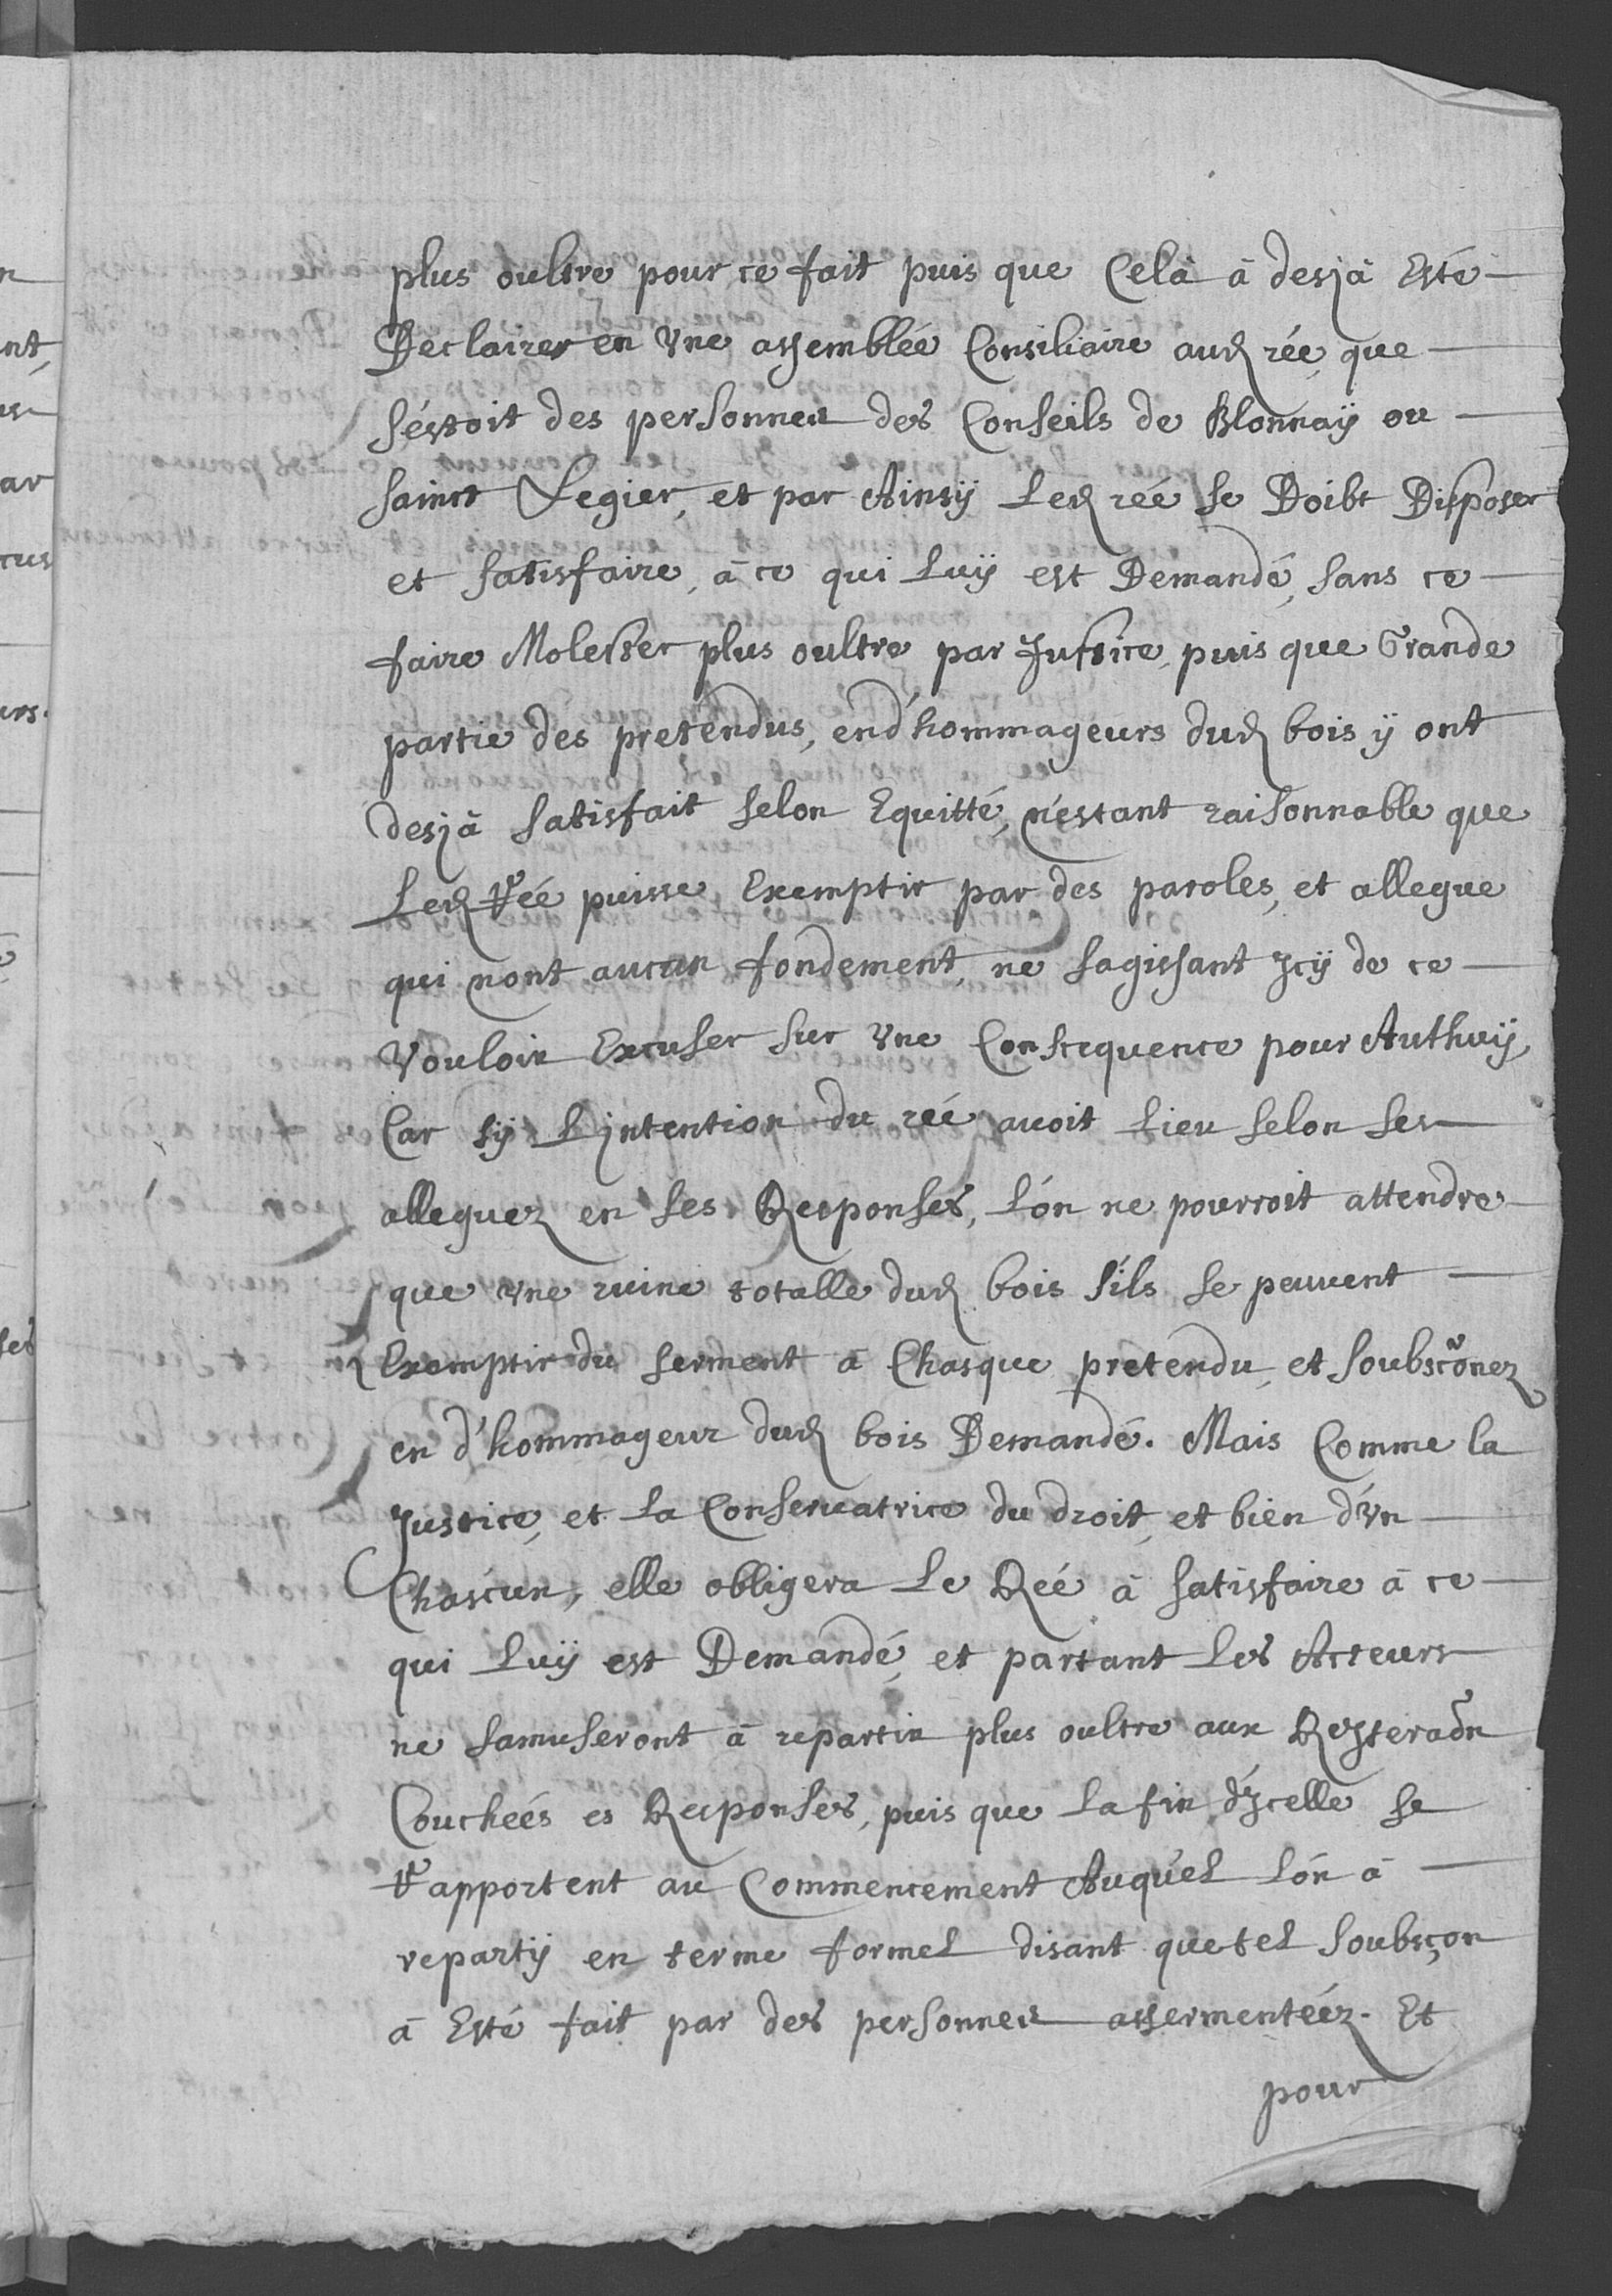 plus oultre pour ce fait puis que Celà à desjà Esté
Declairer en Vne assemblée Consiliaire aud rée, que
séstoit des personnes des Conseils de Blonnaÿ ou
sainct Legier, et par Ainsÿ Led réé se Doibt Disposer
et satisfaire, à ce qui Luÿ est Demandé, sans ce
faire Molester plus oultre par Justice, puis que Grande
partie des pretendus, end'hommageurs dud bois ÿ ont
desjà satisfait selon Equitté, n'estant raisonnable que
Led Réé puisse, Exemptir par des paroles, et allegue
qui nont aucun fondement, ne sagissant Jcÿ de ce
Vouloir Excuser sur Vne Conscequence pour Authuÿ,
Car sÿ L'jntention du réé avoit Lieu selon ses
alleguez en ses Responses, L'ón ne pourroit attendre
que Vne ruine totalle dud bois s'ils se peuvent
Exemptir du serment à Chasque pretendu, et soubsconez
en d'hommageur dud bois Demandé. Mais Comme la
Justice, et La Conservatrice du droit, et bien d'Vn
Chascun, elle obligera Le Réé à satisfaire à ce
qui Luÿ est Demandé, et partant Les Acteurs
ne samuseront à repartir plus oultre aux Rejteraõn
Couchées es Responses, puis que La fin d'Jcelle se
Rapportent au Commencement Auquel L'ón à
repartÿ en terme formel disant que tel soubsçon
à Esté fait par des personnes assermentéez. Et
pour
n
nt,
ar
cus
urs.
ses